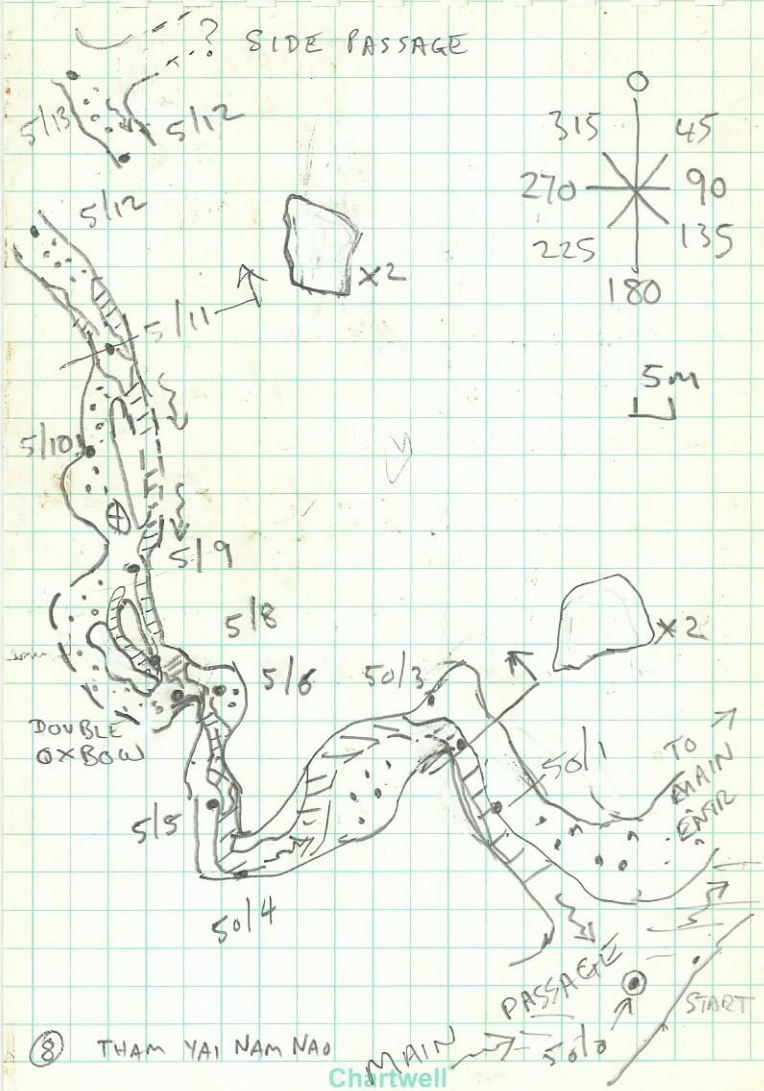 ? SIDE PASSAGE
5/13
5/12
0
315
45
270
90
225
135
180
5/12
5/11
x2
5m
5/10
5/9
5/8
5/6
50/3
x2
DOUBLE
OXBOW
50/1
TO
MAIN
ENTR
5/5
50/4
MAIN PASSAGE
50/0
START
8 THAM YAI NAM NAO
Chartwell